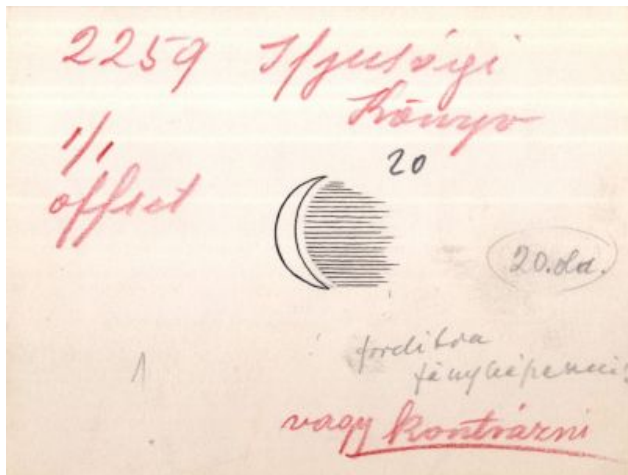 2259 Ifjusági
Könyv
1/1
offset
20
20.old.
fordítva
fényképezni
1
vagy kontrázni